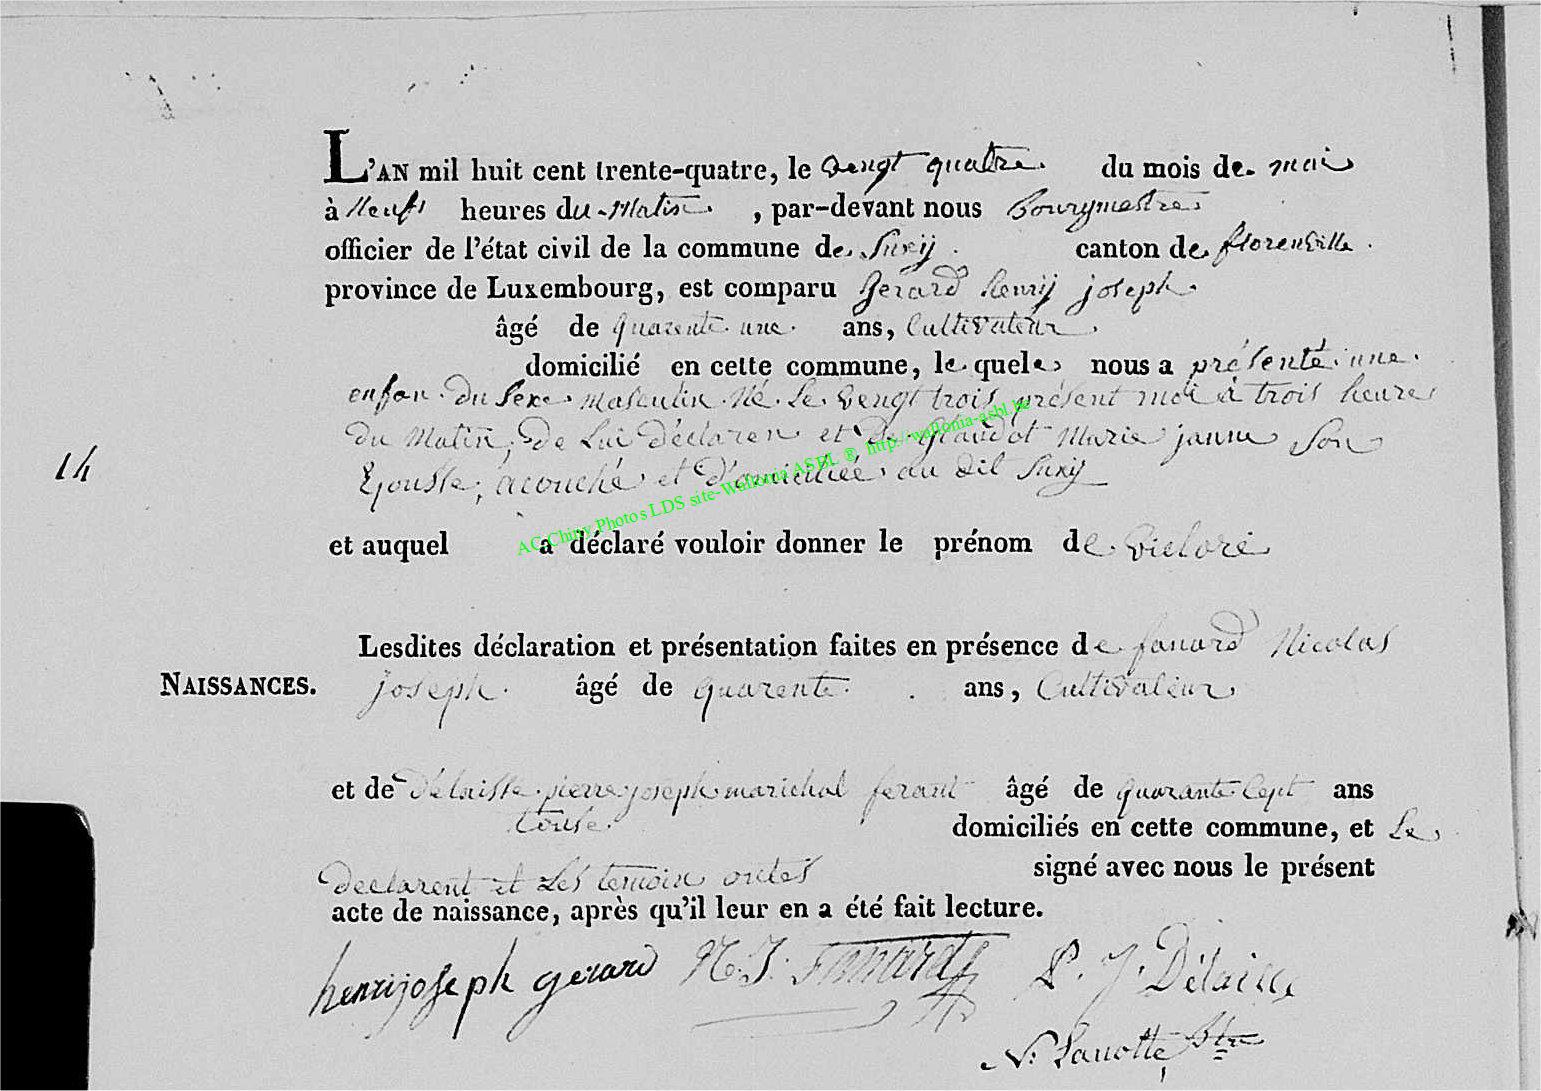 L'AN mil huit cent trente-quatre, le vengt quatre du mois de mai
à Neufs heures du Matin , par-devant nous Bourgmestre
officier de l'état civil de la commune de Suxÿ canton de florenville
province de Luxembourg, est comparu Gérard henrÿ joseph
âgé de quarente une ans, Cultivateur
domicilié en cette commune, le quel nous a présenté une
enfan du Sexe masculin Né Le vengt trois présent mai à trois heures
du Matin, De Lui déclaren et De Glaudot Marie janne Son
Epousse, acouché et D'omiciliée au dit Suxÿ
14
et auquel a déclaré vouloir donner le prénom de Victore
Lesdites déclaration et présentation faites en présence de fanard Nicolas
NAISSANCES. joseph âgé de quarente ans, Cultivateur
et de Délaisse pierre joseph marichal ferant âgé de quarante Sept ans
tousé domiciliés en cette commune, et Le
declarent et Les temoin ontes signé avec nous le présent
acte de naissance, après qu'il leur en a été fait lecture.
henrijoseph gerard N. J. Fanard P. J. Délaisse
N. Lanotte Btre
AC Chiny Photos LDS site-Wallonia ASBL ® http://wallonia-asbl.be